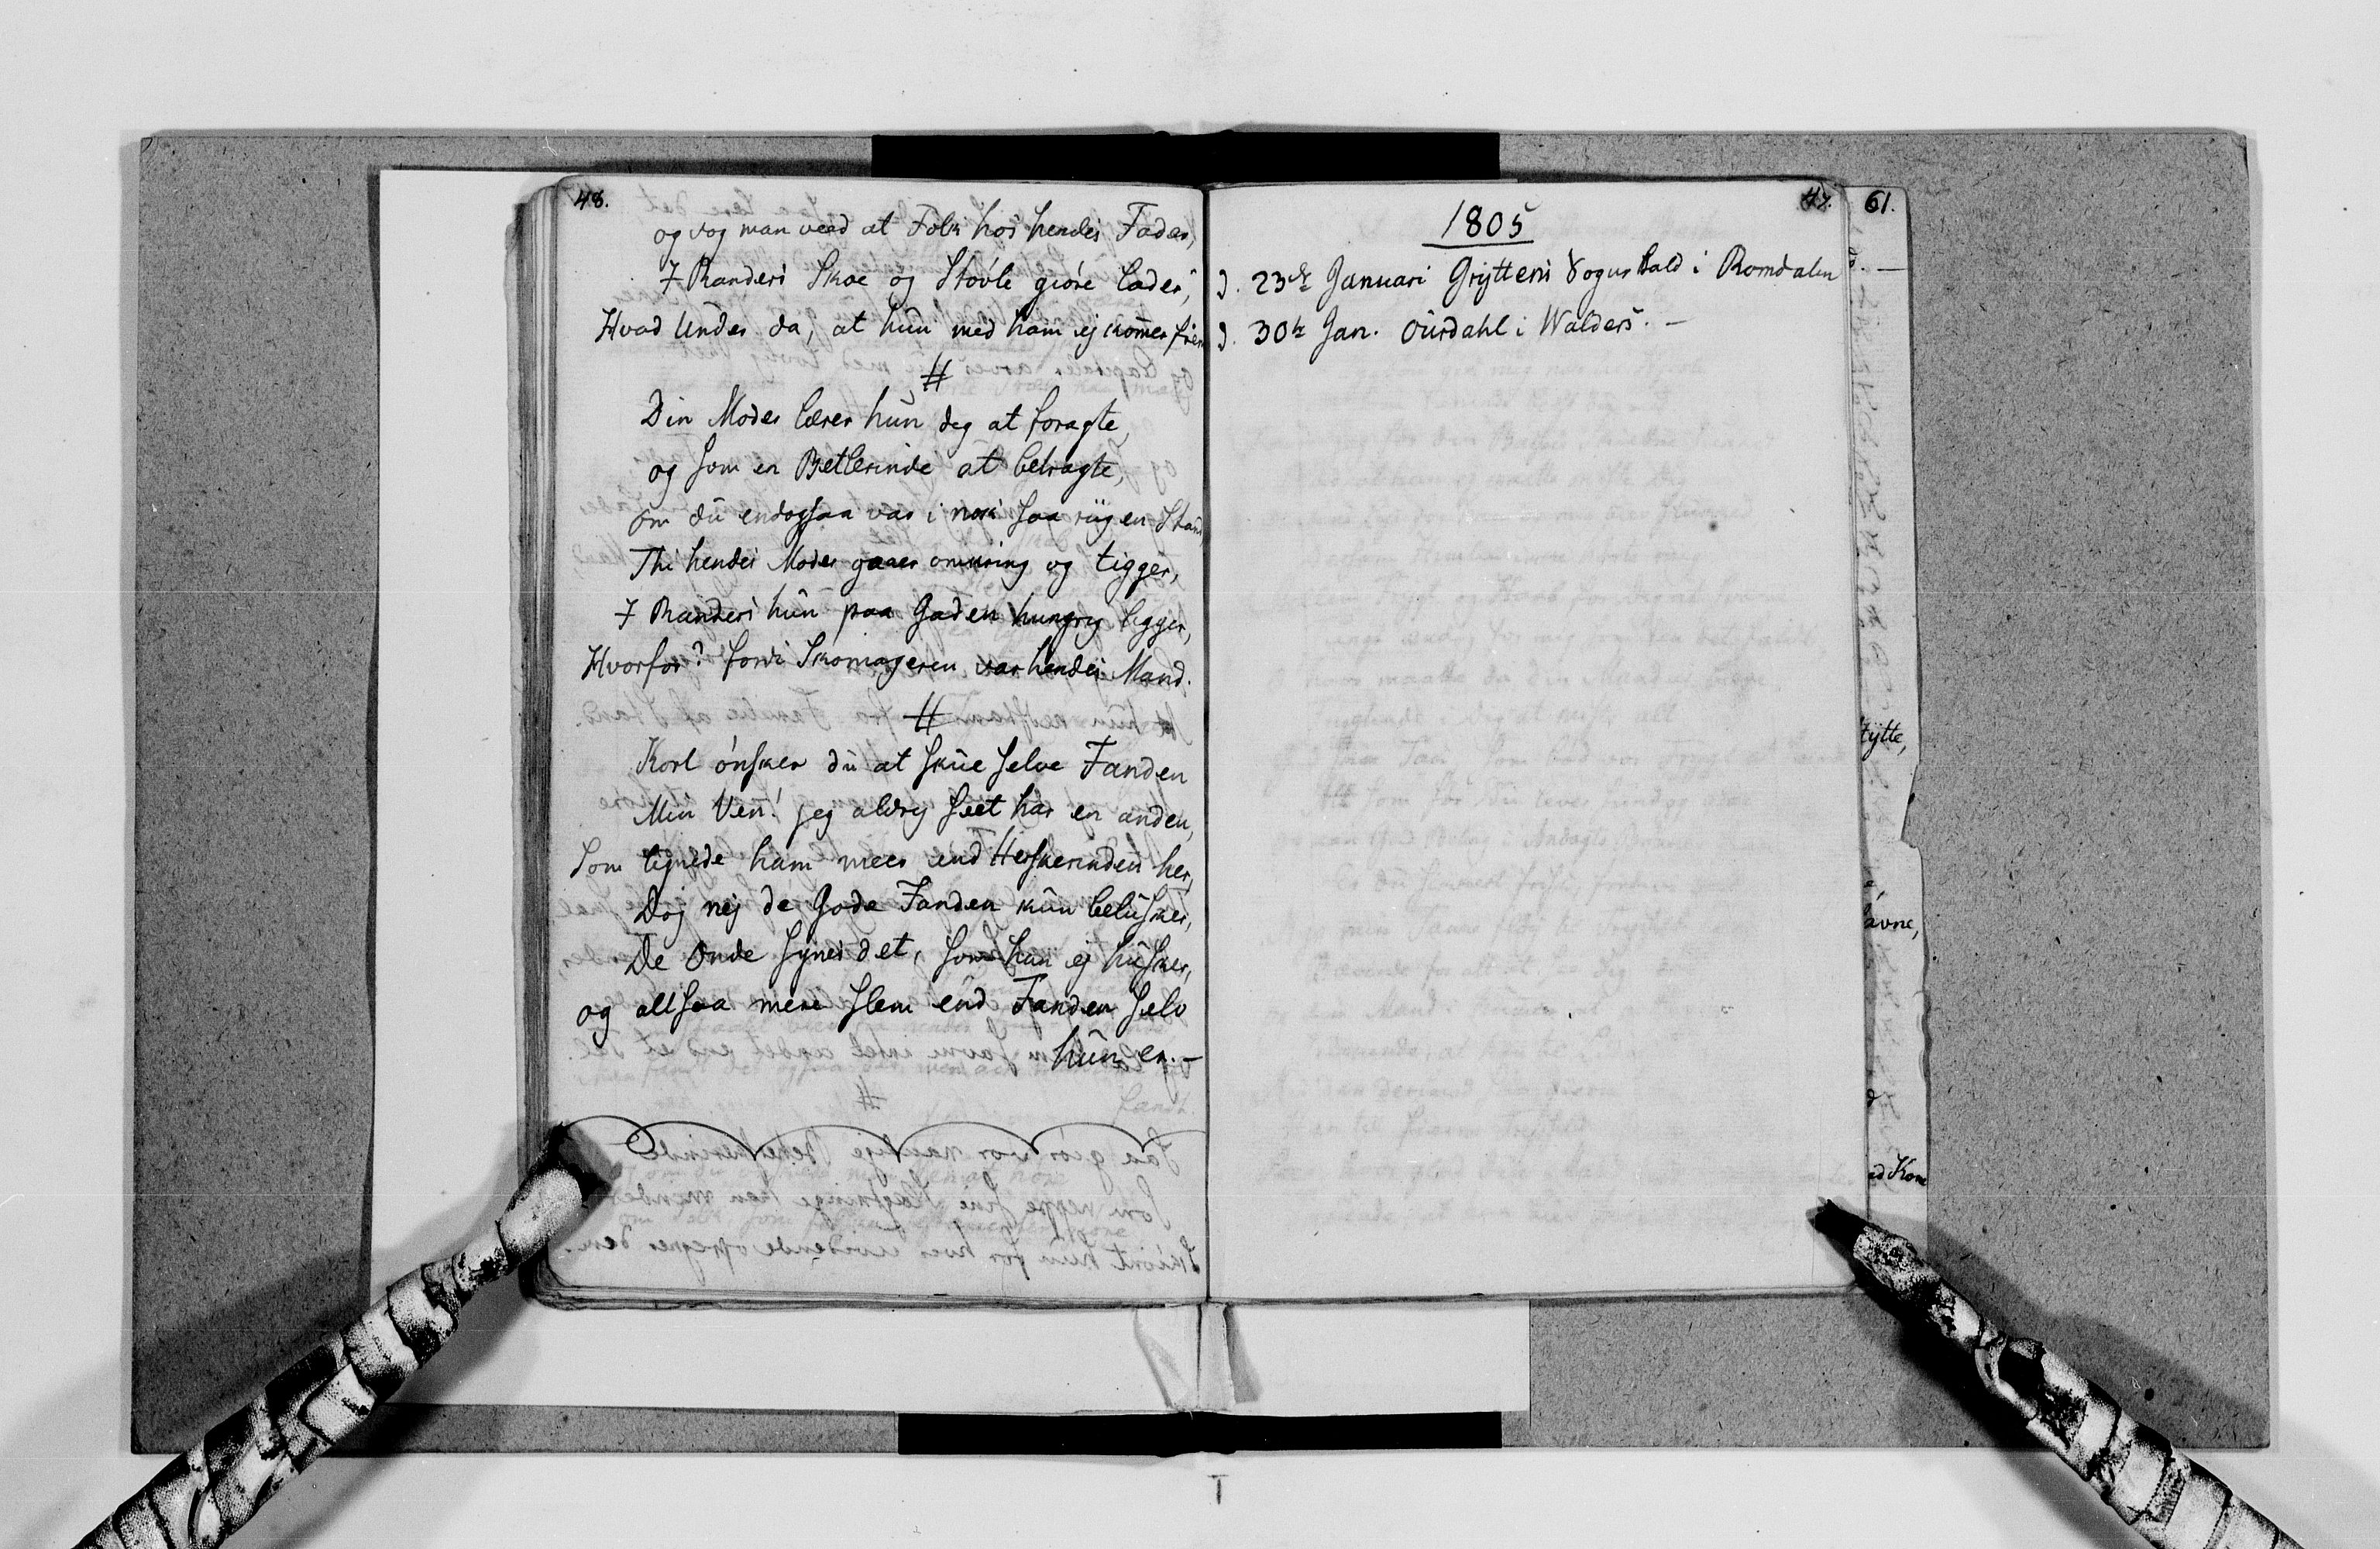 48.
og dog man veed at Folk hos hendes Fader,
I Randers Skoe og Støvle giöre lader,
Hvad Under da, at hun med ham ej kom̄er frem
#
Din Moder lærer hun dig at foragte,
og som en Betlerinde at betragte,
om dū endogsaa var i nok saa riig en Stand
Thi hendes Moder gaaer omkring og tigger,
I Randers hūn paa Gaden hungrig ligger,
Hvorfor? fordi Skomageren var hendes Mand.
#
Kort ønsker dū at skūe selve Fanden
Min Ven! jeg aldrig seet har en anden,
Som lignede ham meer end Herskerinden her,
Dog nej de Gode Fanden kūn belūsker,
De Onde synes det, som hun ej hūsker,
og altsaa mere slem end Fanden selv
hūn er. —
47.
1805
d. 23de Januari Gryttens Vogus Kald i Romdalen
d. 30te Jan. Oūrdahl i Walders. —
61.
tytte,
avne,
ad Kom